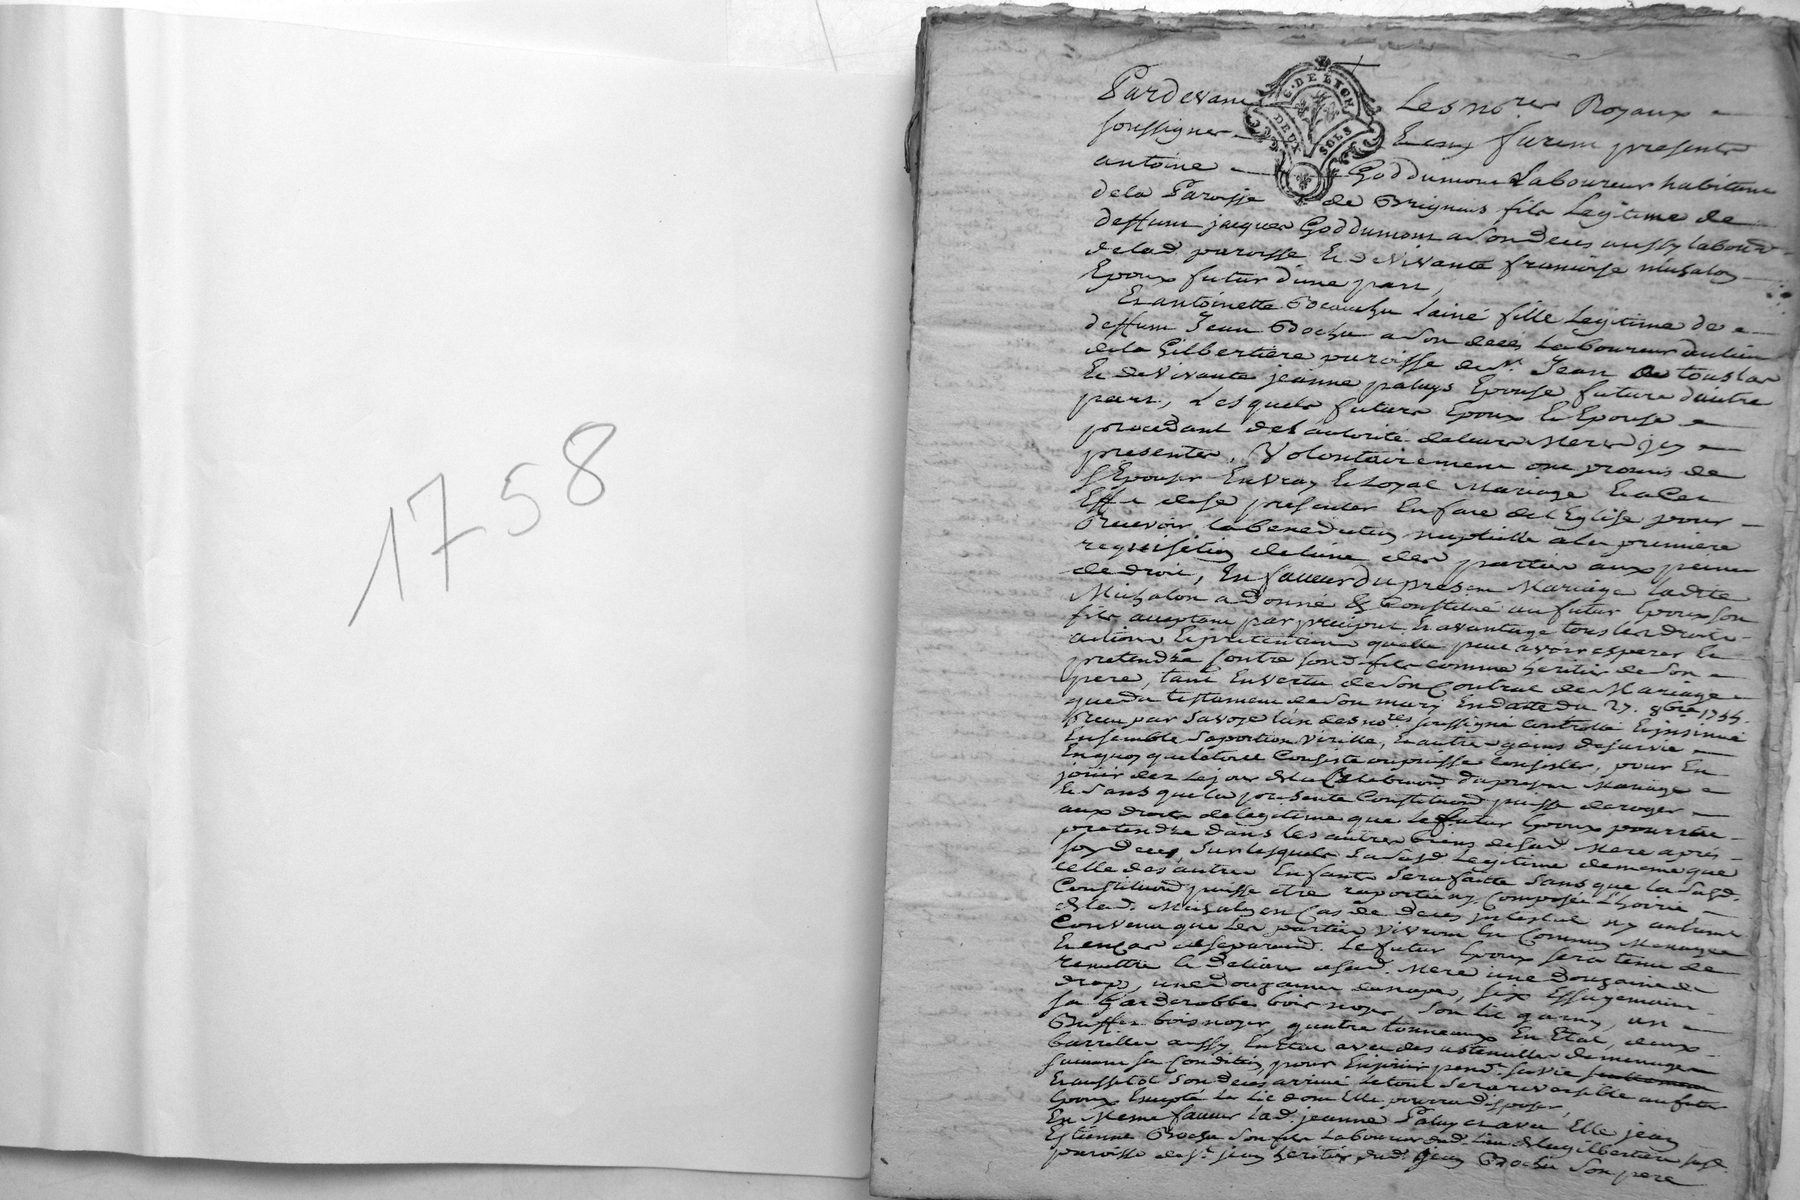 1758
G. DE LION
DEUX SOLS
Pardevant Les no.res Royaux
soussignes Et temoins furent presents
antoine Goddumont Laboureur habitant
dela Paroisse de Brignais fils Legitime de
deffunt jacques Goddumont a son deces aussy labour
delad. paroisse Et de vivante francoise michalon
Epoux futur d'une part,
Et antoinette lainé fille Legitime de
deffunt Jean Bochu a son deces Laboureur du lieu
dela Gilbertiere paroisse de St. Jean de touslas
Et de Vivante jeanne Epouse future dautre
part, Lesquels futurs Epoux Et Epouse
procedant de l'autorité de leurs Meres icy
presentes, Volontairement ont promis de
s'Epouser En vray Et Loyal Mariage Et a cet
Effet de se presenter En face de l'Eglise pour
Recevoir la benediction nuptialle a la premiere
requisition de lune des parties aux peines
de droit, En faveur Du present Mariage ladite
Michalon a donné & Constitué au futur Epoux son
fils acceptant par preciput Et avantage tous les droits
actions Et pretentions quelle peut avoir esperer Et
pretendre Contre sond. fils comme heritier de son
pere, tant En vertu de son Contrat de Mariage
que du testament de son mary En date du 27. 8bre
Receu par Savoye l'un des no.res soussigné Controllé Et insinué
Ensemble sa portion virille, Et autre gains de survie
En quoy que le tout Consiste ou puisse Consister, pour En
jouir des Le jour de la Celebration du present Mariage
Et sans que la presente Constitution puisse deroger
aux droits de legitime que le futur Epoux pourroit
pretendre dans les autres biens de sad. Mere après
son deces, sur lesquels sa legitime de meme que
celle des autres Enfants sera faitte sans que la susd.
Constitution puisse etre raportée ny composée L'hoirie
de lad. Michalon En Cas de deces intestat ny autrement
Convenu que les parties vivront En Commun Menage
Et en cas de separation. Le futur Epoux sera tenu de
remettre Et Delivrer a sad. Mere une Douzaine de
draps, une Douzaine de napes, six Essuyemain
sa Garderobbe bois noyer, son lit garny, un
Buffet bois noyer, quatre tonneaux En Etat, deux
barrilles aussy En Etat avec des ustencilles de menage
suivant sa Condition, pour En jouir pend.t sa vie
Et aussitot son deces arrivé le tout sera reversible au futur
Epoux Excepté Le Lit dont Elle pourra disposer,
En Meme faveur lad. jeanne Et avec Elle jean
Estienne Bochu son fils Laboureur dud. Lieu de la gilbertiere susd.
paroisse de St. jean heritier dud. jean Bochu son pere